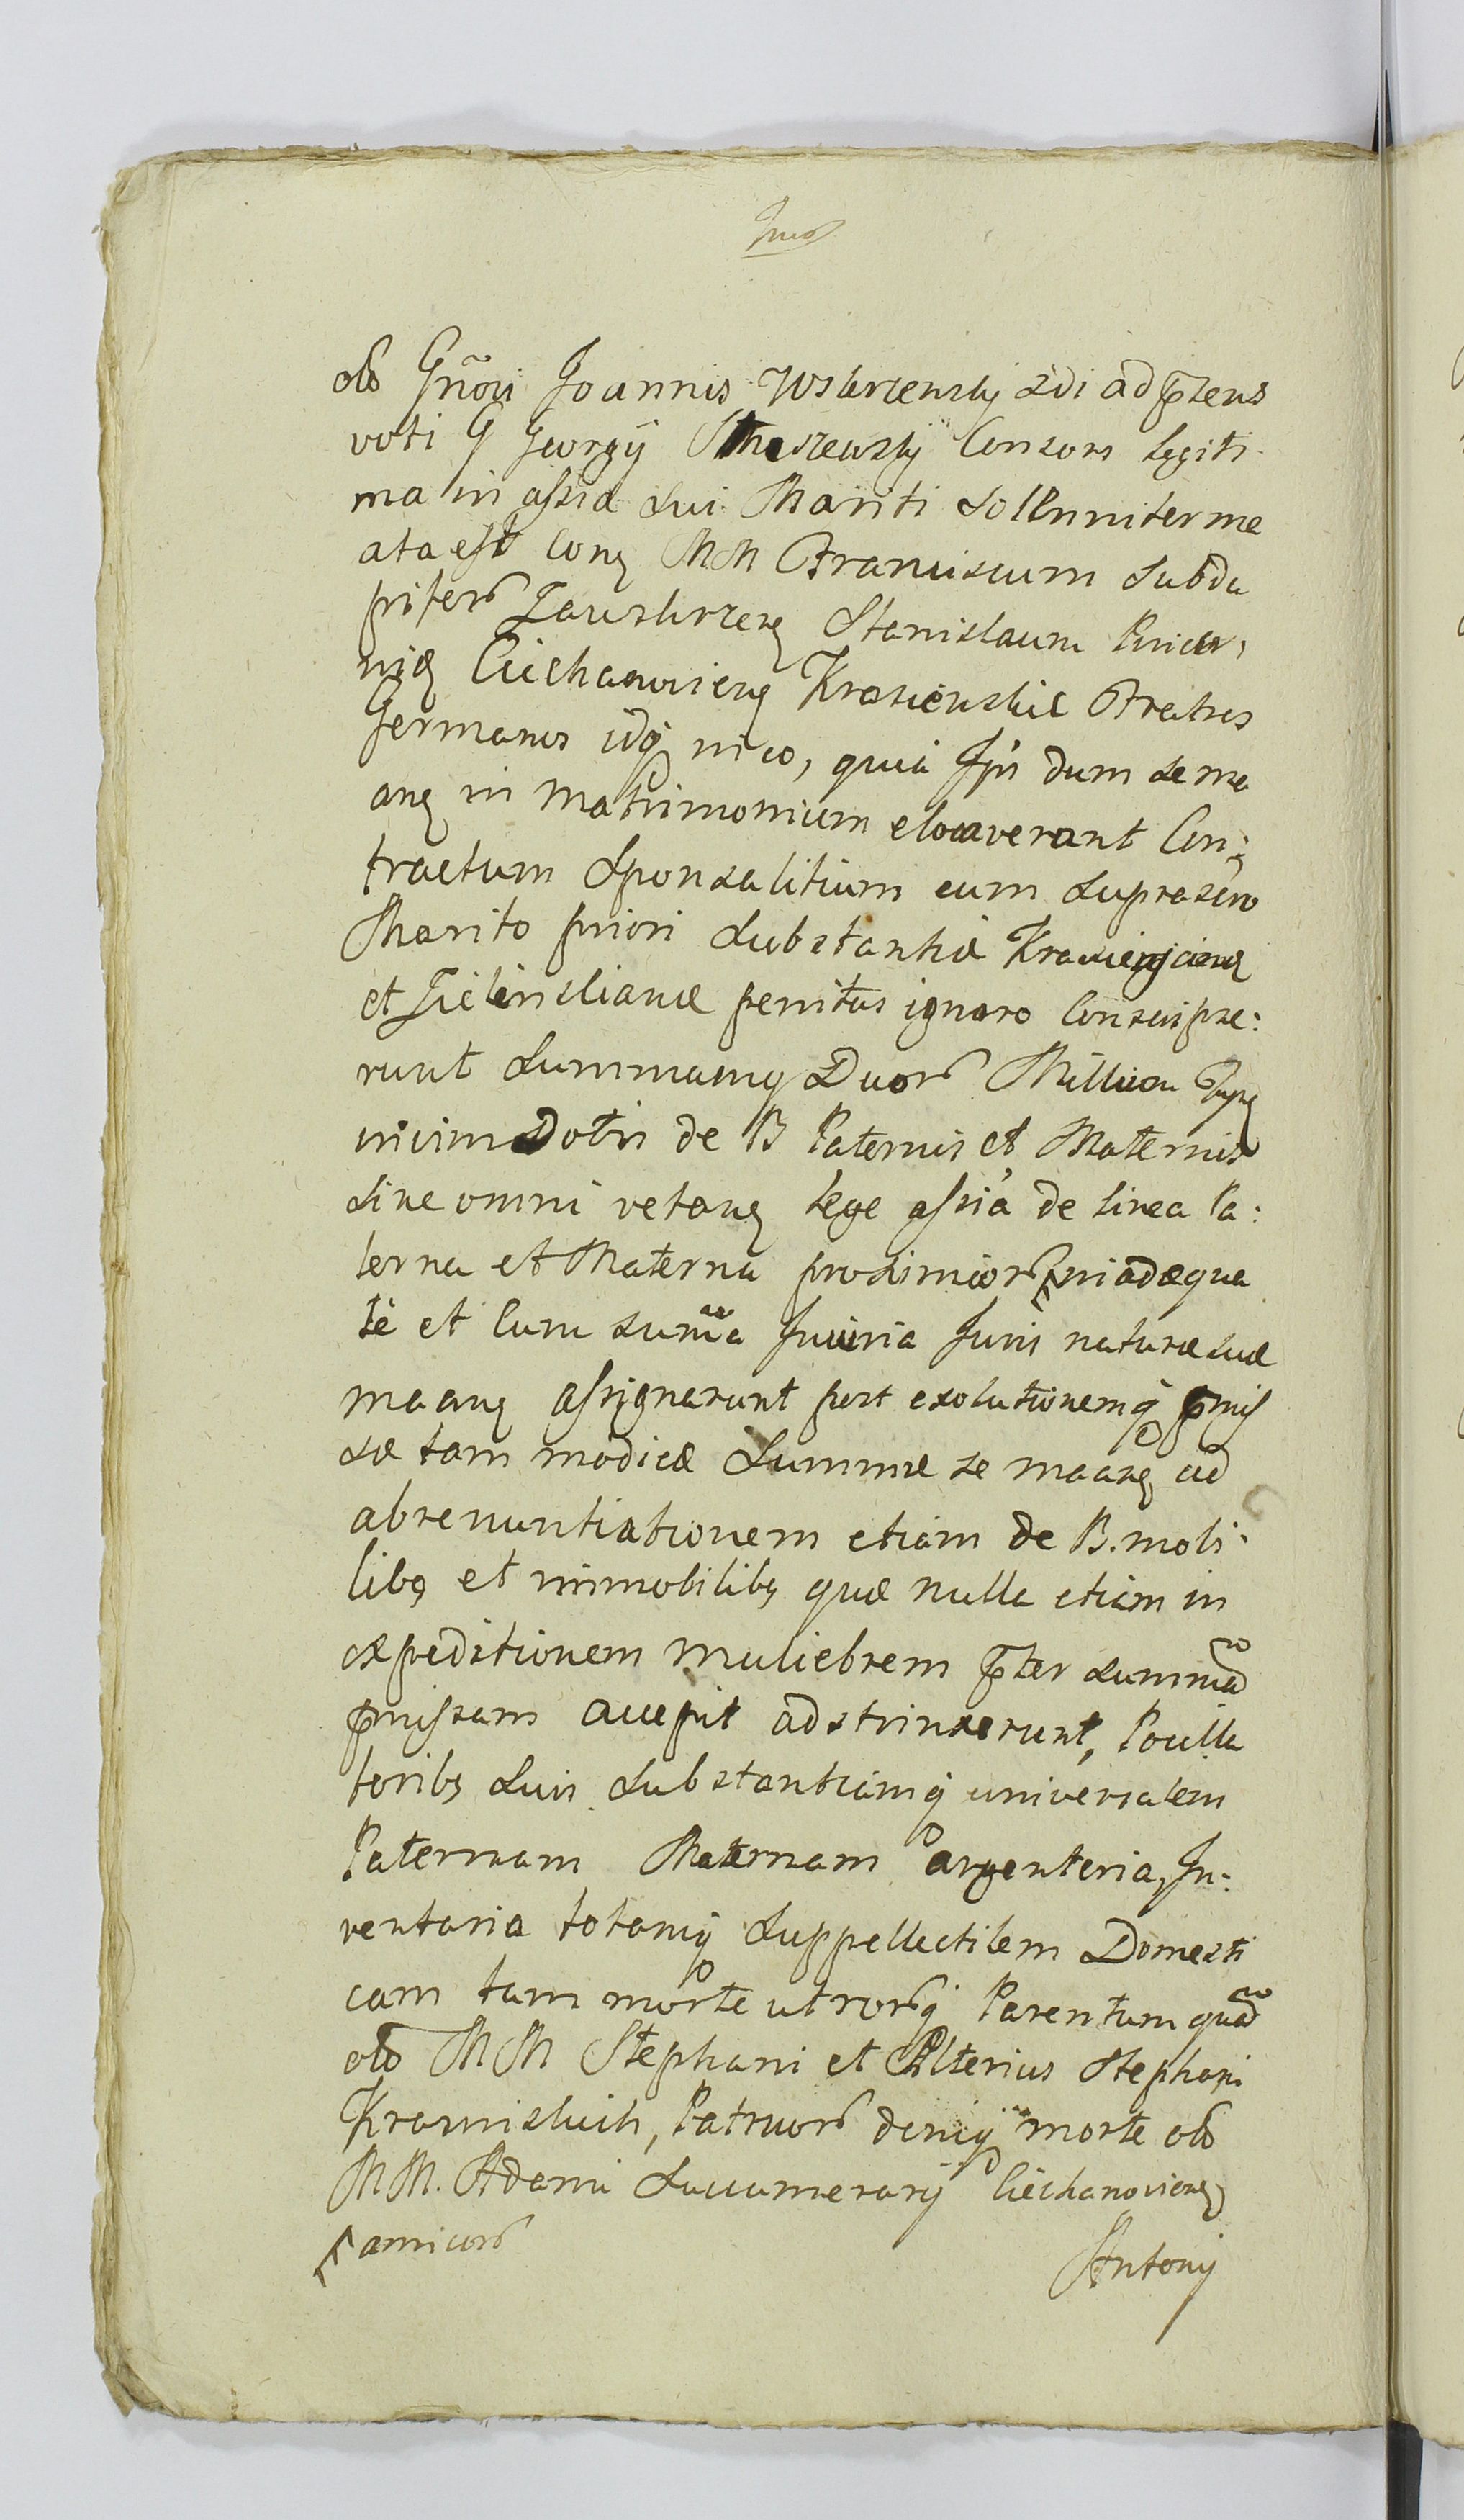 olo Gñosi Joannis Wskrzensky 2di ad p̄tens
voti G Georgÿ Consors legiti
ma in assia sui Mariti sollenniter me
ata est Conq MM Franciscum Subda
piferū Zawskrzen Stanislaum Pincer,
nid Ciechanovien Krasienskie Fratres
Germanos idq ni eo, quia Ipsi dum se ma
anq in Matrimonium elocaverant Con:
tractum Sponsalitium cum suprascrō
Marito priori substantiæ
et Zielinskianæ penitus ignaro Conscripse:
runt Summamq Duorū Millium
vicim Dotis de B Paternis et Maternis
sine omni vetanq lege assia de linea Pa:
terna et Materna proximiorū inadæqua
tè et Cum sum̄a Iniuria Juris naturæ suæ
maanq assignarunt post exolutionemq p̄mis
sæ tam modicæ Summæ se maanq ad
abrenuntiationem etiam de B. mobi:
libq et immobilibq quæ nulla etiam in
expeditionem muliebrem p̄ter summā
p̄missam accepit adstrinxerunt,
toribq suis substantiamq universalem
Paternam Maternam argenteria, In:
ventaria totamq suppellectilem Domesti
cam tam morte utrorūq Parentum quā
olo MM Stephani et Alterius Stephani
Krasinskich, Patruorū deniq morte olo
MM. Adami Succamerarÿ Ciechanovienq
amicorū
Antonÿ